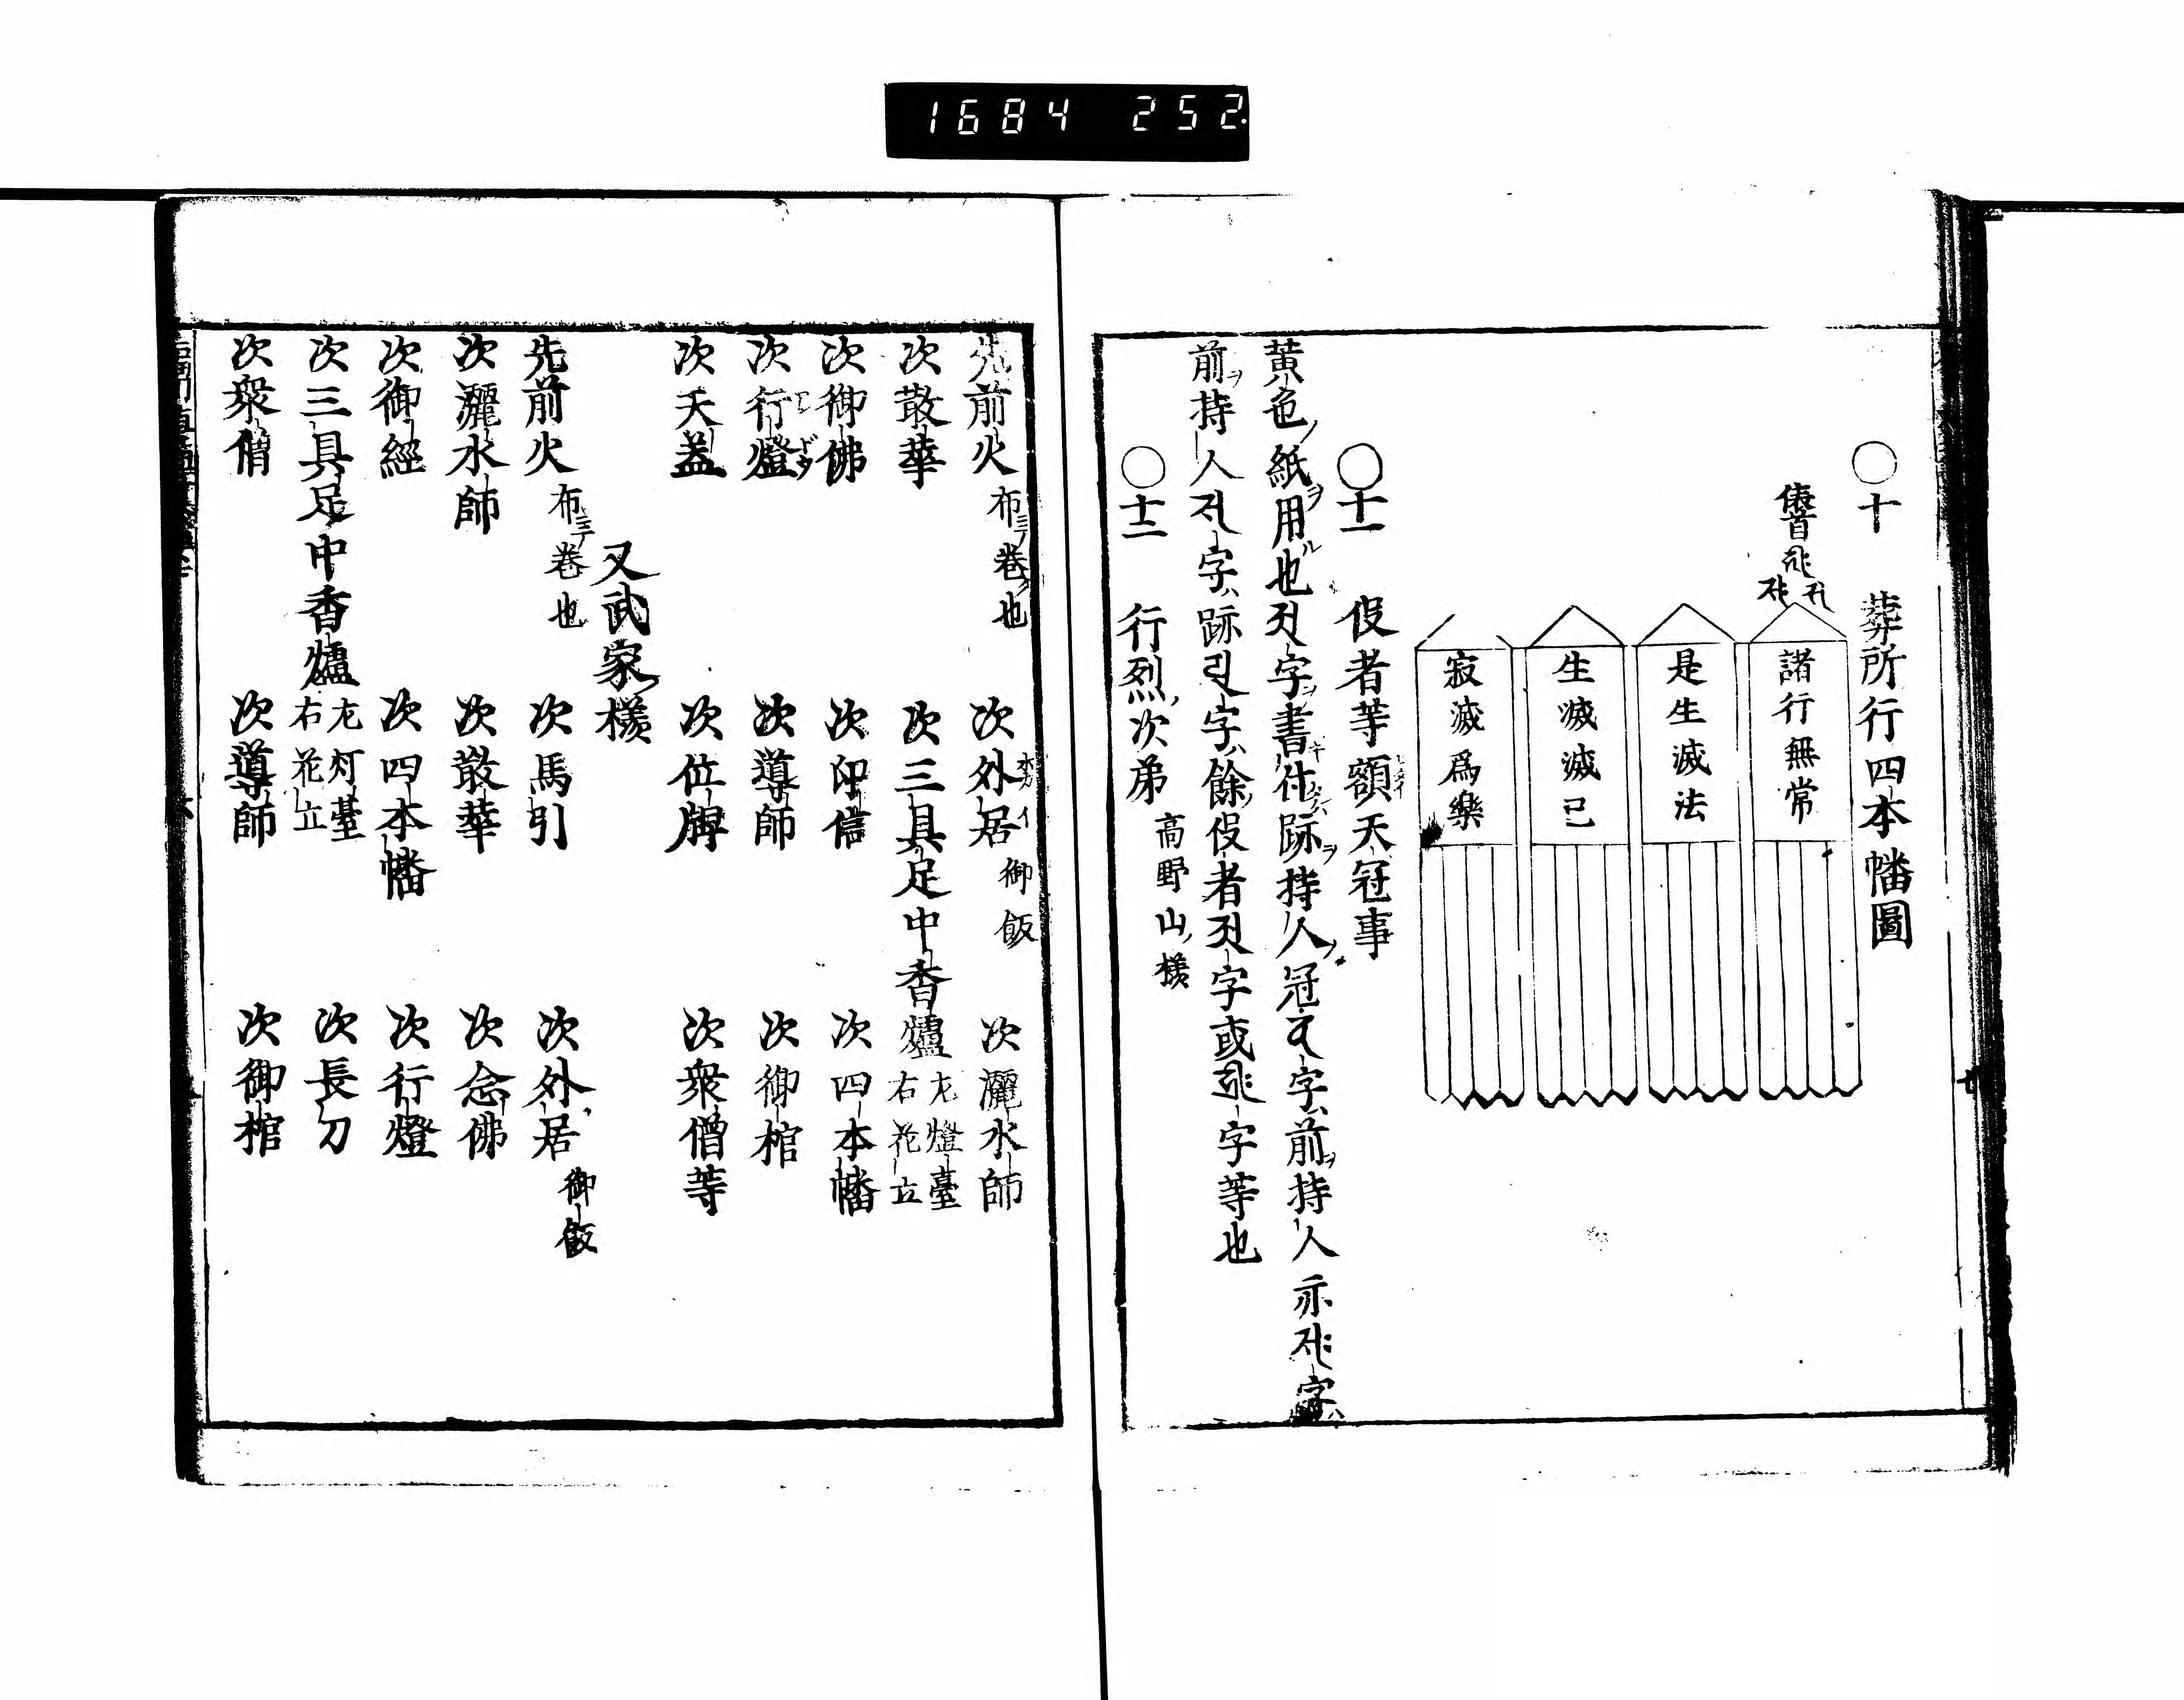 1684 252
○十　葬所行四本幡圖
諸行無常
是生滅法
生滅滅已
寂滅爲樂
○十一　役者等額天冠事
黄色ノ紙ヲ用ル也
字ヲ書付跡ヲ持人ノ冠
字ハ前ヲ持人亦
字ハ
前ヲ持人
字ハ跡
字ハ餘ノ役者
字或
字等也
○十二　行烈ノ次弟　高野山ノ様
先前火　布ニテ巻ク也　次外居　御飯　次灑水師
次散華　次三具足中香爐　左燈臺　右花立
次御佛　次印信　次四本幡
次行燈　次導師　次御棺
次天蓋　次位牌　次衆僧等
又武家ノ様
先前火　布ニテ巻也　次馬引　次外居　御飯
次灑水師　次散華　次念佛
次御經　次四本幡　次行燈
次三具足中香爐　左灯臺　右花立　次長刀
次衆僧　次導師　次御棺